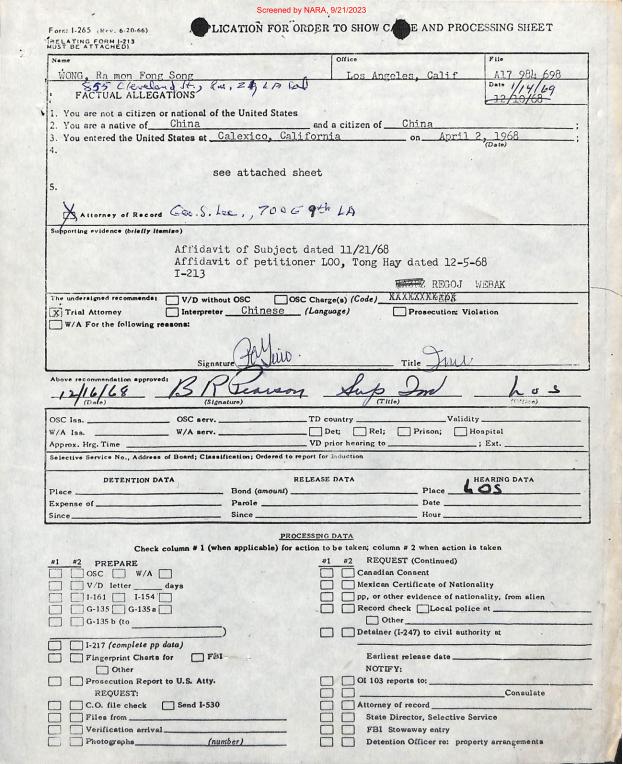 Screened by NARA, 9/21/2023
Form: I-265 (Rev. 6-20-66)
(RELATING FORM I-213
MUST BE ATTACHED)
APPLICATION FOR ORDER TO SHOW CAUSE AND PROCESSING SHEET
Name Office File
WONG, Ra mon Fong Song Los Angeles, Calif A17 984 698
855 Cleveland St., Date 1/14/69
FACTUAL ALLEGATIONS 12/10/68
1. You are not a citizen or national of the United States
2. You are a native of China and a citizen of China ;
3. You entered the United States at Calexico, California on April 2, 1968 ;
(Date)
4.
see attached sheet
5.
X Attorney of Record Geo. S. Lee., 700 E 9th LA
Supporting evidence (briefly itemise)
Affidavit of Subject dated 11/21/68
Affidavit of petitioner LOO, Tong Hay dated 12-5-68
I-213
REGOJ WEBAK
The undersigned recommends: V/D without OSC OSC Charge(s) (Code)
X Trial Attorney Interpreter Chinese (Language) Prosecution: Violation
W/A For the following reasons:
Signature Title
Above recommendation approved:
12/16/68 B R Pearson Los
(Date) (Signature) (Title) (Office)
OSC Iss. OSC serv. TD country Validity
W/A Iss. W/A serv. Det; Rel; Prison; Hospital
Approx. Hrg. Time VD prior hearing to ; Ext.
Selective Service No., Address of Board; Classification; Ordered to report for Induction
DETENTION DATA RELEASE DATA HEARING DATA
Place Bond (amount) Place LOS
Expense of Parole Date
Since Since Hour
PROCESSING DATA
Check column # 1 (when applicable) for action to be taken; column # 2 when action is taken
#1 #2 PREPARE
OSC W/A
V/D letter days
I-161 I-154
G-135 G-135a
G-135 b (to )
I-217 (complete pp data)
Fingerprint Charts for FBI
Other
Prosecution Report to U.S. Atty.
REQUEST:
C.O. file check Send I-530
Files from
Verification arrival
Photographs (number)
#1 #2 REQUEST (Continued)
Canadian Consent
Mexican Certificate of Nationality
pp, or other evidence of nationality, from alien
Record check Local police at
Other
Detainer (I-247) to civil authority at
Earliest release date
NOTIFY:
OI 103 reports to:
Consulate
Attorney of record
State Director, Selective Service
FBI Stowaway entry
Detention Officer re: property arrangements